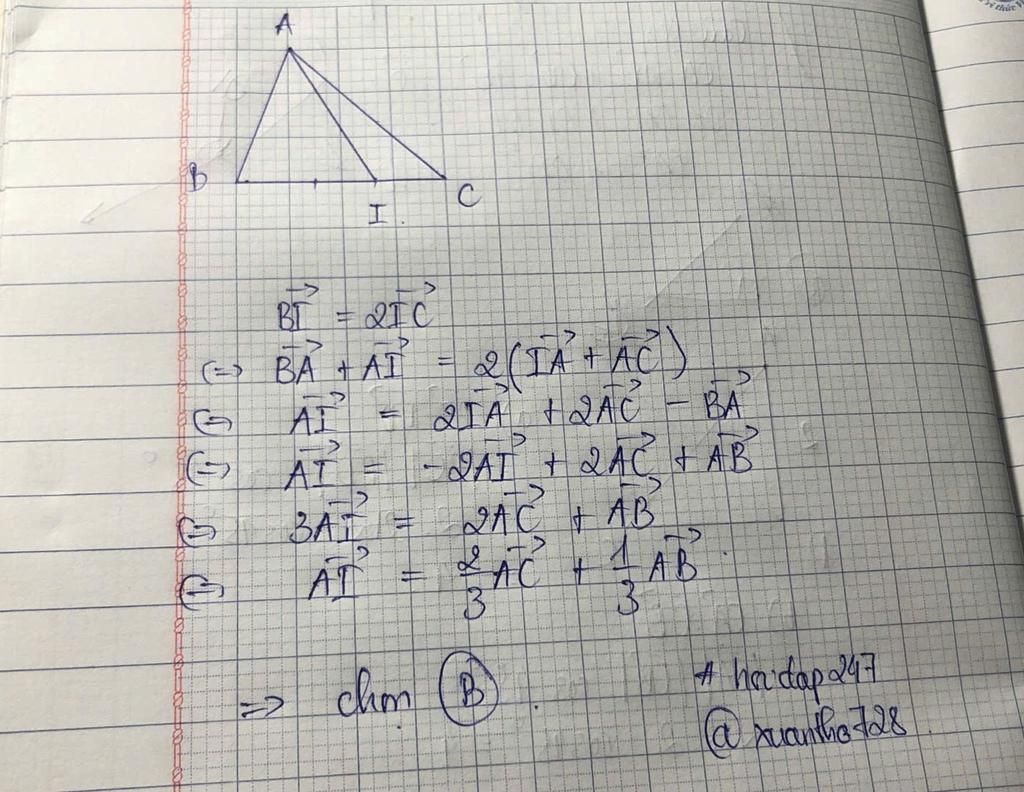 A
B
I
C
$\overrightarrow{BI} = 2\overrightarrow{IC}$
$\Leftrightarrow \overrightarrow{BA} + \overrightarrow{AI} = 2(\overrightarrow{IA} + \overrightarrow{AC})$
$\Leftrightarrow \overrightarrow{AI} = 2\overrightarrow{IA} + 2\overrightarrow{AC} - \overrightarrow{BA}$
$\Leftrightarrow \overrightarrow{AI} = -2\overrightarrow{AI} + 2\overrightarrow{AC} + \overrightarrow{AB}$
$\Leftrightarrow 3\overrightarrow{AI} = 2\overrightarrow{AC} + \overrightarrow{AB}$
$\Leftrightarrow \overrightarrow{AI} = \frac{2}{3}\overrightarrow{AC} + \frac{1}{3}\overrightarrow{AB}$.
=> chọn B.
# hoidap247
@xuantho728